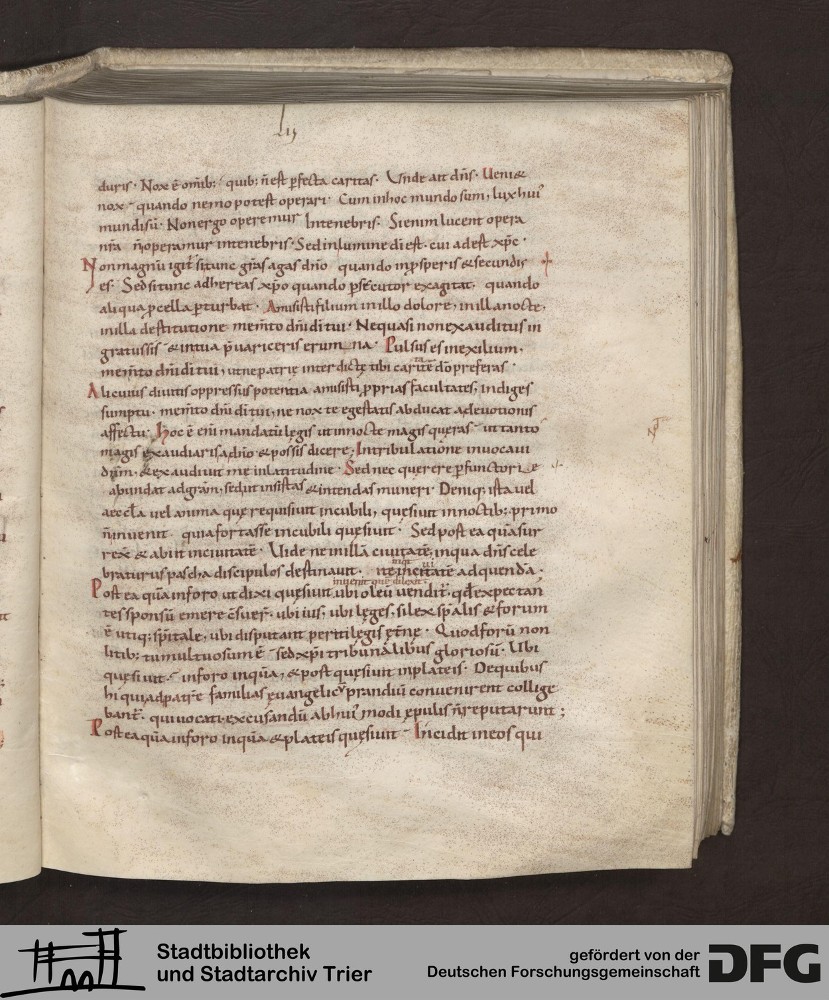 duris. Nox ē om̄ib; quib; n̄ est ꝑfecta caritas. Unde ait dn̄s. Ueni&
nox quando nemo potest operari. Cum in hoc mundo sum, lux hui'
mundi sū. Non ergo operemur Intenebris. Si enim lucent opera
nr̄a n̄ operamur intenebris. Sed in lumine dī est. cui adest xp̄c.
Non magnū igit̄ si tunc gr̄as agas dn̄o quando in ꝓsperis & secundis
es. Sed si tunc adhereas xp̄o quando ꝑsecutor exagitat, quando
aliqua ꝓcella ꝑturbat. Amisisti filium in illo dolore, in illa nocte,
in illa destitutione mem̄to dn̄i dī tui. Ne quasi non exauditus in
gratus sis & in tua p̄uariceris erum na. Pulsus es in exilium,
mem̄to dn̄i dī tui, ut ne patrię interdictę tibi caritatē dō preferas.
Alicuius diuitis oppressus potentia amisisti ꝓprias facultates, indiges
sumptu. mem̄to dn̄i dī tui, ne nox te egestatis abducat a deuotionis
affectu. Hoc ē enī mandatū legis ut in nocte magis queras ut tanto
magis exaudiaris a dn̄o & possis dicere, In tribulatione inuocaui
dn̄m. & exaudiuit me in latitudine. Sed nec querere ꝑfunctorie
abundat ad gr̄am, sed ut insistas & intendas muneri. Deniq; ista uel
aeccl̄a uel anima quę requisiuit in cubili, quęsiuit in noctib; primo
n̄ inuenit. quia fortasse in cubili quęsiuit. Sed post ea quā sur
rex & abiit in ciuitatē. Uide ne in illā ciuitatē, inqua dn̄s cele
braturus pascha discipulos destinauit. ite inquit in ciuitatē ad quendā.
inuenit quē dilexit.
Post ea quā in foro ut dixi quęsiuit, ubi oleū uendit̄. qd̄ expectan
tes sponsū emere
utiq; sp̄itale, ubi disputant periti legis ęt̄nę. Quod forū non
litib; tumultuosum ē sed xp̄i tribunalibus gloriosū. Ubi
quęsiuit in foro inquā, & post quęsiuit in plateis. De quibus
hi qui ad patr̄e familias euangelicū prandiū conuenirent collige
bant̄. qui uocati excusandū ab hui' modi ępulis n̄ reputarunt;
Post ea quā in foro inquā & plateis quęsiuit Incidit in eos qui
Stadtbibliothek
und Stadtarchiv Trier
gefördert von der
Deutschen Forschungsgemeinschaft
DFG